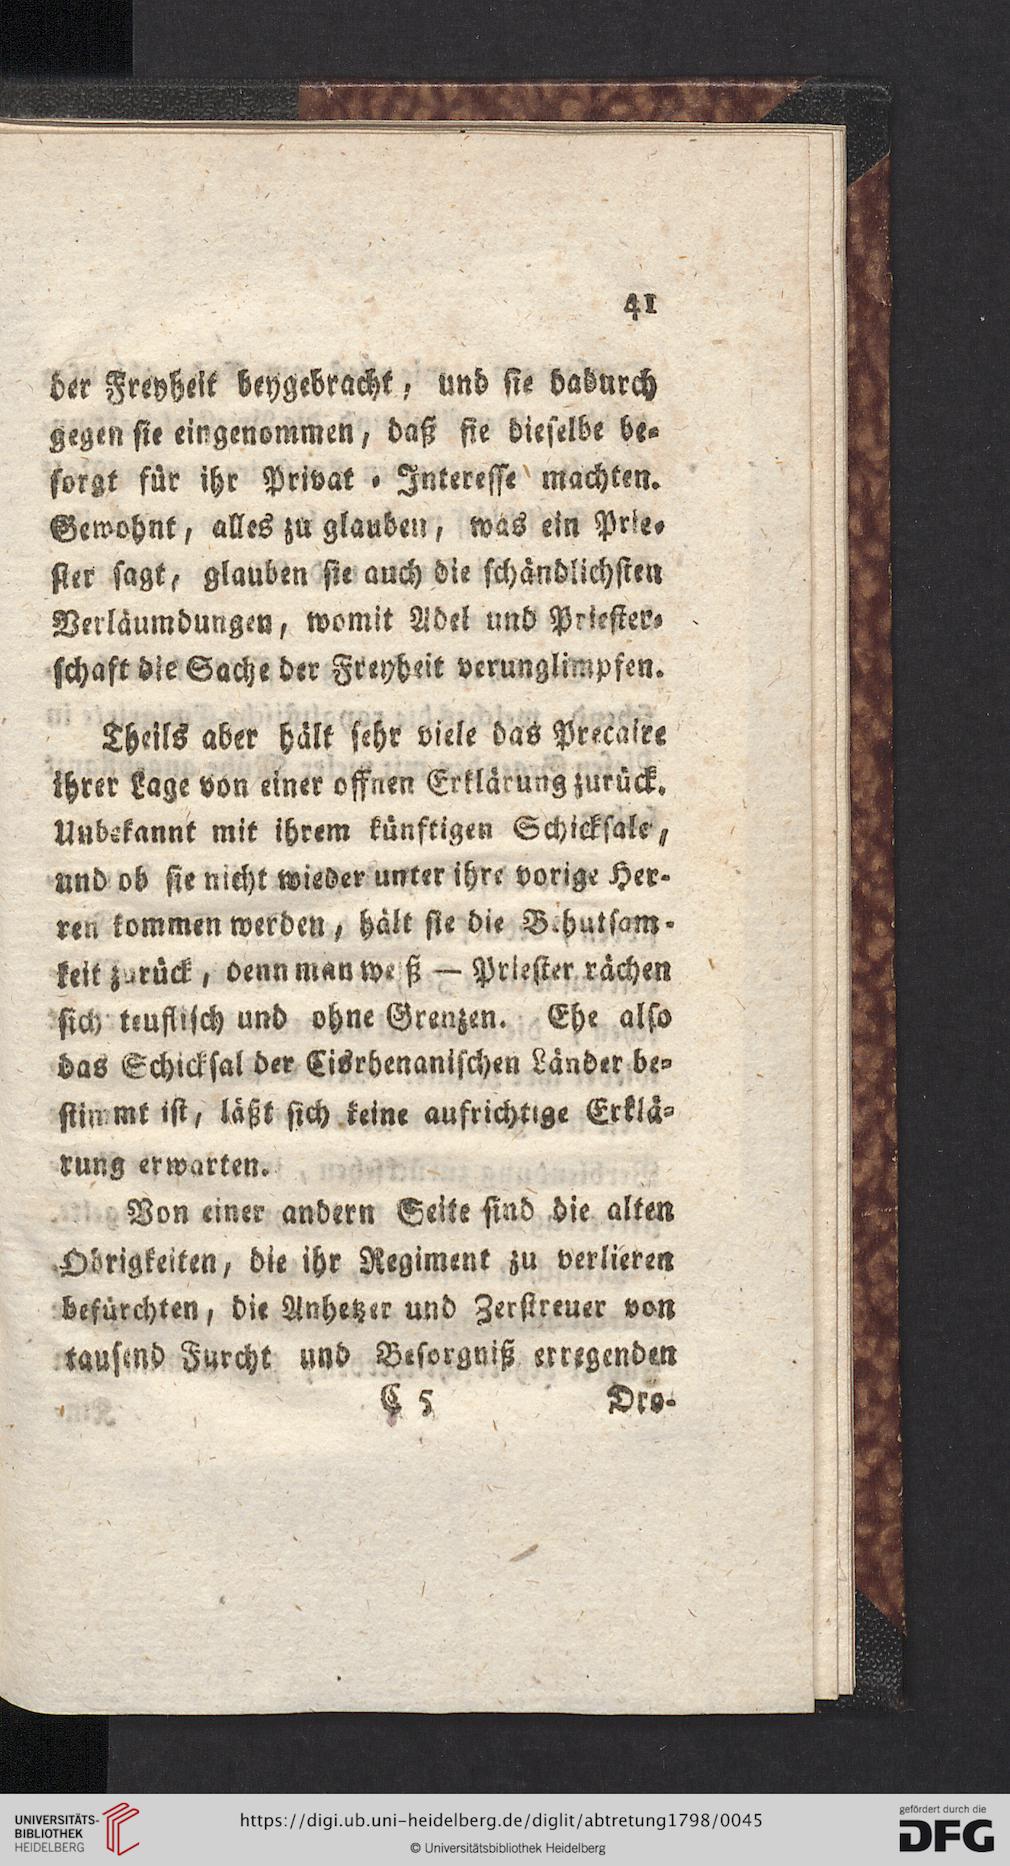 41
der Freyheit beygebracht, und sie dadurch
gegen sie eingenommen, daß sie dieselbe be-
sorgt für ihr Privat-Interesse machten.
Gewohnt, alles zu glauben, was ein Prie-
ster sagt, glauben sie auch die schändlichsten
Verläumdungen, womit Adel und Priester-
schaft die Sache der Freyheit verunglimpfen.
Theils aber hält sehr viele das Precaire
ihrer Lage von einer offnen Erklärung zurück.
Unbekannt mit ihrem künftigen Schicksale,
und ob sie nicht wieder unter ihre vorige Her-
ren kommen werden, hält sie die Behutsam-
keit zurück, denn man weiß — Priester rächen
sich teuflisch und ohne Grenzen. Ehe also
das Schicksal der Cisrhenanischen Länder be-
stimmt ist, läßt sich keine aufrichtige Erklä-
rung erwarten.
Von einer andern Seite sind die alten
Obrigkeiten, die ihr Regiment zu verlieren
befürchten, die Anhetzer und Zerstreuer von
tausend Furcht und Besorgniß erregenden
C 5 Dro-
UNIVERSITÄTS-
BIBLIOTHEK
HEIDELBERG
https://digi.ub.uni-heidelberg.de/diglit/abtretung1798/0045
© Universitätsbibliothek Heidelberg
gefördert durch die
DFG